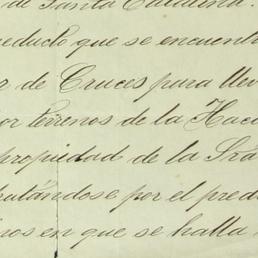 de Santa Catarina.
ueducto que se encuent
r de Cruces para llev
or terrenos de la Haci
propiedad de la Sra
ratándose por el pred
nos en que se halla